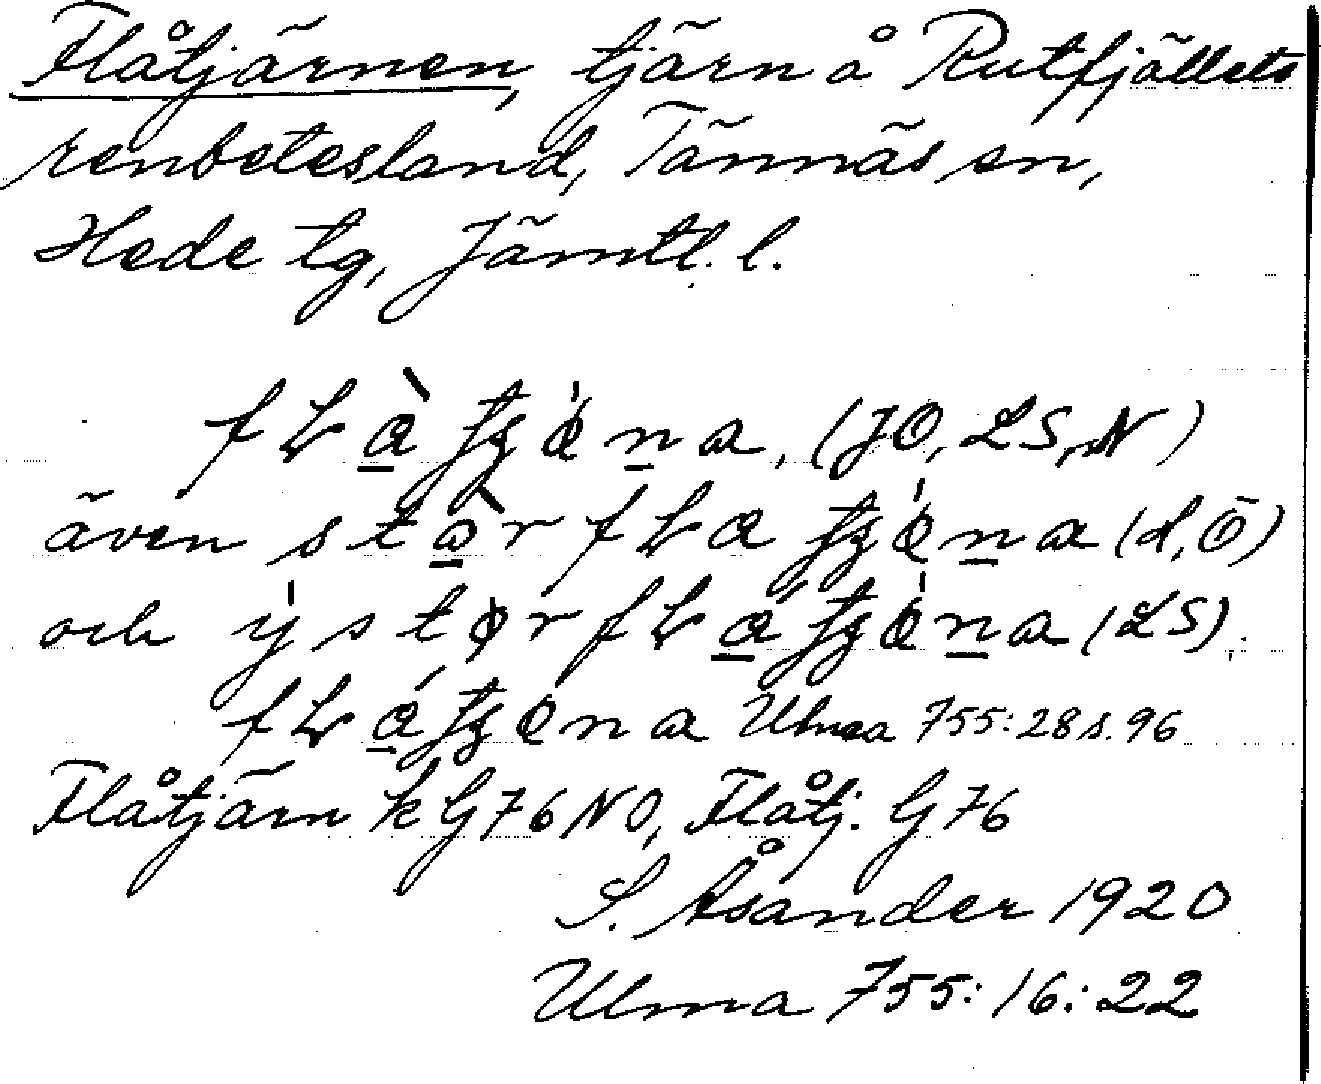 Flåtjärnen, tjärn å Rutfjällets
renbetesland, Tännäs sn,
Hede tg, Jämtl. l.
(JO, LS, N)
även (d, Ö)
och (LS),
Ulma 755:28 s. 96
Flåtjärn k G76 NO, Flåtj. G76
S. Åsander 1920
Ulma 755:16:22